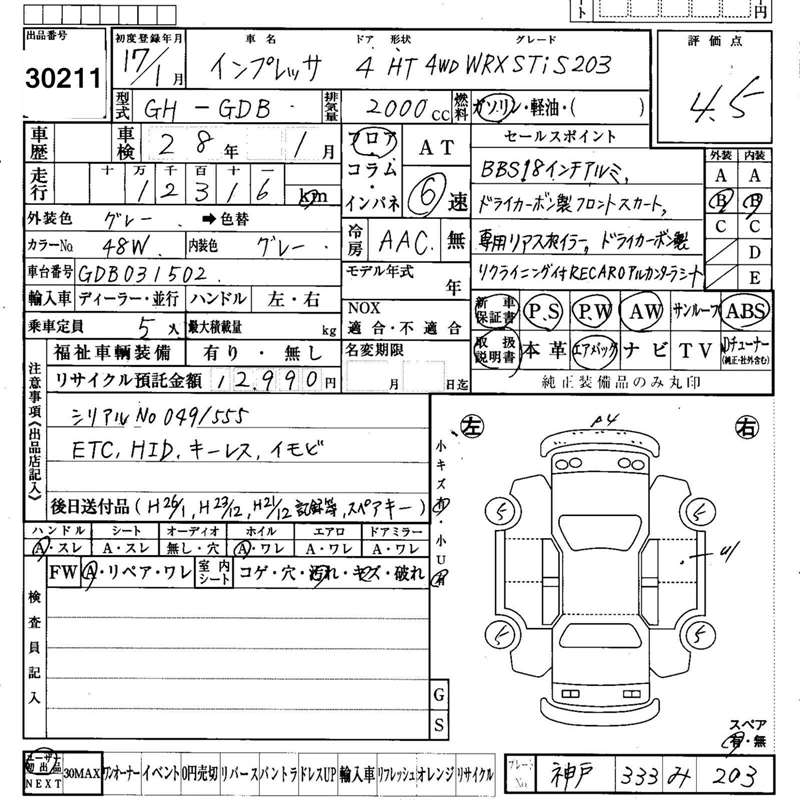 ート 円
出品番号 初度登録年月 車名 ドア 形状 グレード 評価点
30211 17/1月 インプレッサ 4 HT 4WD WRX STi S203 4.5
型式 GH - GDB 排気量 2000cc 燃料 ガソリン・軽油・( )
車歴 車検 28年 1月 フロア・コラム・インパネ AT 6速 セールスポイント 外装 内装
走行 十 万 千 百 十 一
12316 km
BBS18インチアルミ、
ドライカーボン製フロントスカート、
専用リアスポイラー、ドライカーボン製
リクライニング付RECAROアルカンターラシート
A A
B B
C C
D
E
外装色 グレー ➡色替 冷房 AAC 無
カラーNo. 48W 内装色 グレー
車台番号 GDB031502 モデル年式 年
輸入車 ディーラー・並行 ハンドル 左・右 NOX 適合・不適合
乗車定員 5人 最大積載量 kg
新車保証書 P.S P.W AW サンルーフ ABS
取扱説明書 本革 エアバック ナビ TV Dチューナー(純正・社外含む)
純正装備品のみ丸印
福祉車輌装備 有り・無し 名変期限 月 日迄
リサイクル預託金額 12,990円
注意事項《出品店記入》
シリアルNo 049/555
ETC, HID, キーレス, イモビ
後日送付品(H26/1, H23/12, H21/12 記録等, スペアキー)
ハンドル シート オーディオ ホイル エアロ ドアミラー
A・スレ A・スレ 無し・穴 A・ワレ A・ワレ A・ワレ
FW A・リペア・ワレ 室内シート コゲ・穴・汚れ・キズ・破れ
検査員記入
小キズ有・小U有
左 右
5 5
U1
5 5
G
S
スペア
有・無
ユーザー初出品 NEXT 30MAX ワンオーナー イベント 0円売切 リバース バントラ ドレスUP 輸入車 リフレッシュ オレンジ リサイクル
プレートNo. 神戸 333 み 203